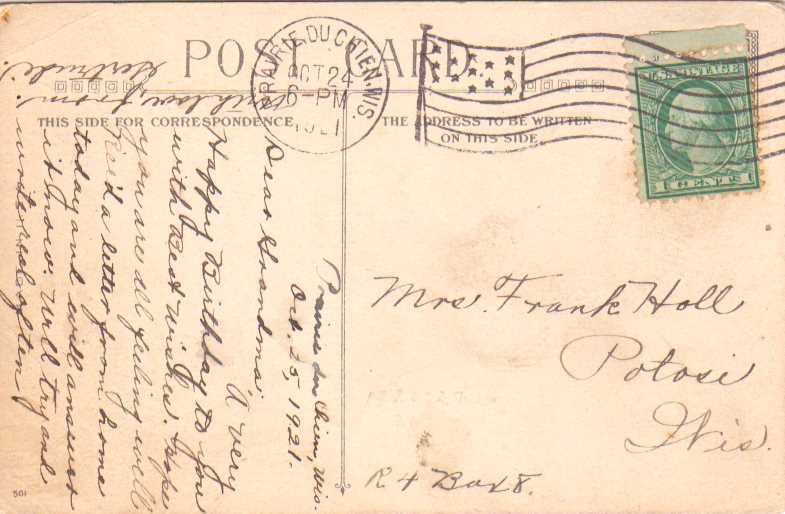 POST CARD
PRAIRIE DU CHIEN, WIS.
OCT 24
6-PM
1921
U.S. POSTAGE
1 CENTS 1
THIS SIDE FOR CORRESPONDENCE
THE ADDRESS TO BE WRITTEN
ON THIS SIDE
Prairie du Chien, Wis.
Oct. 25, 1921.
Dear Grandma:
A very
Happy Birthday to you
with Best Wishes. Hope
you are all feeling well
Rec'd a letter from home
today and will answer
it now. Will try and
write real often
Much love from:
Gertrude.
Mrs. Frank Holl
Potosi
Wis.
R 4 Box 8.
501